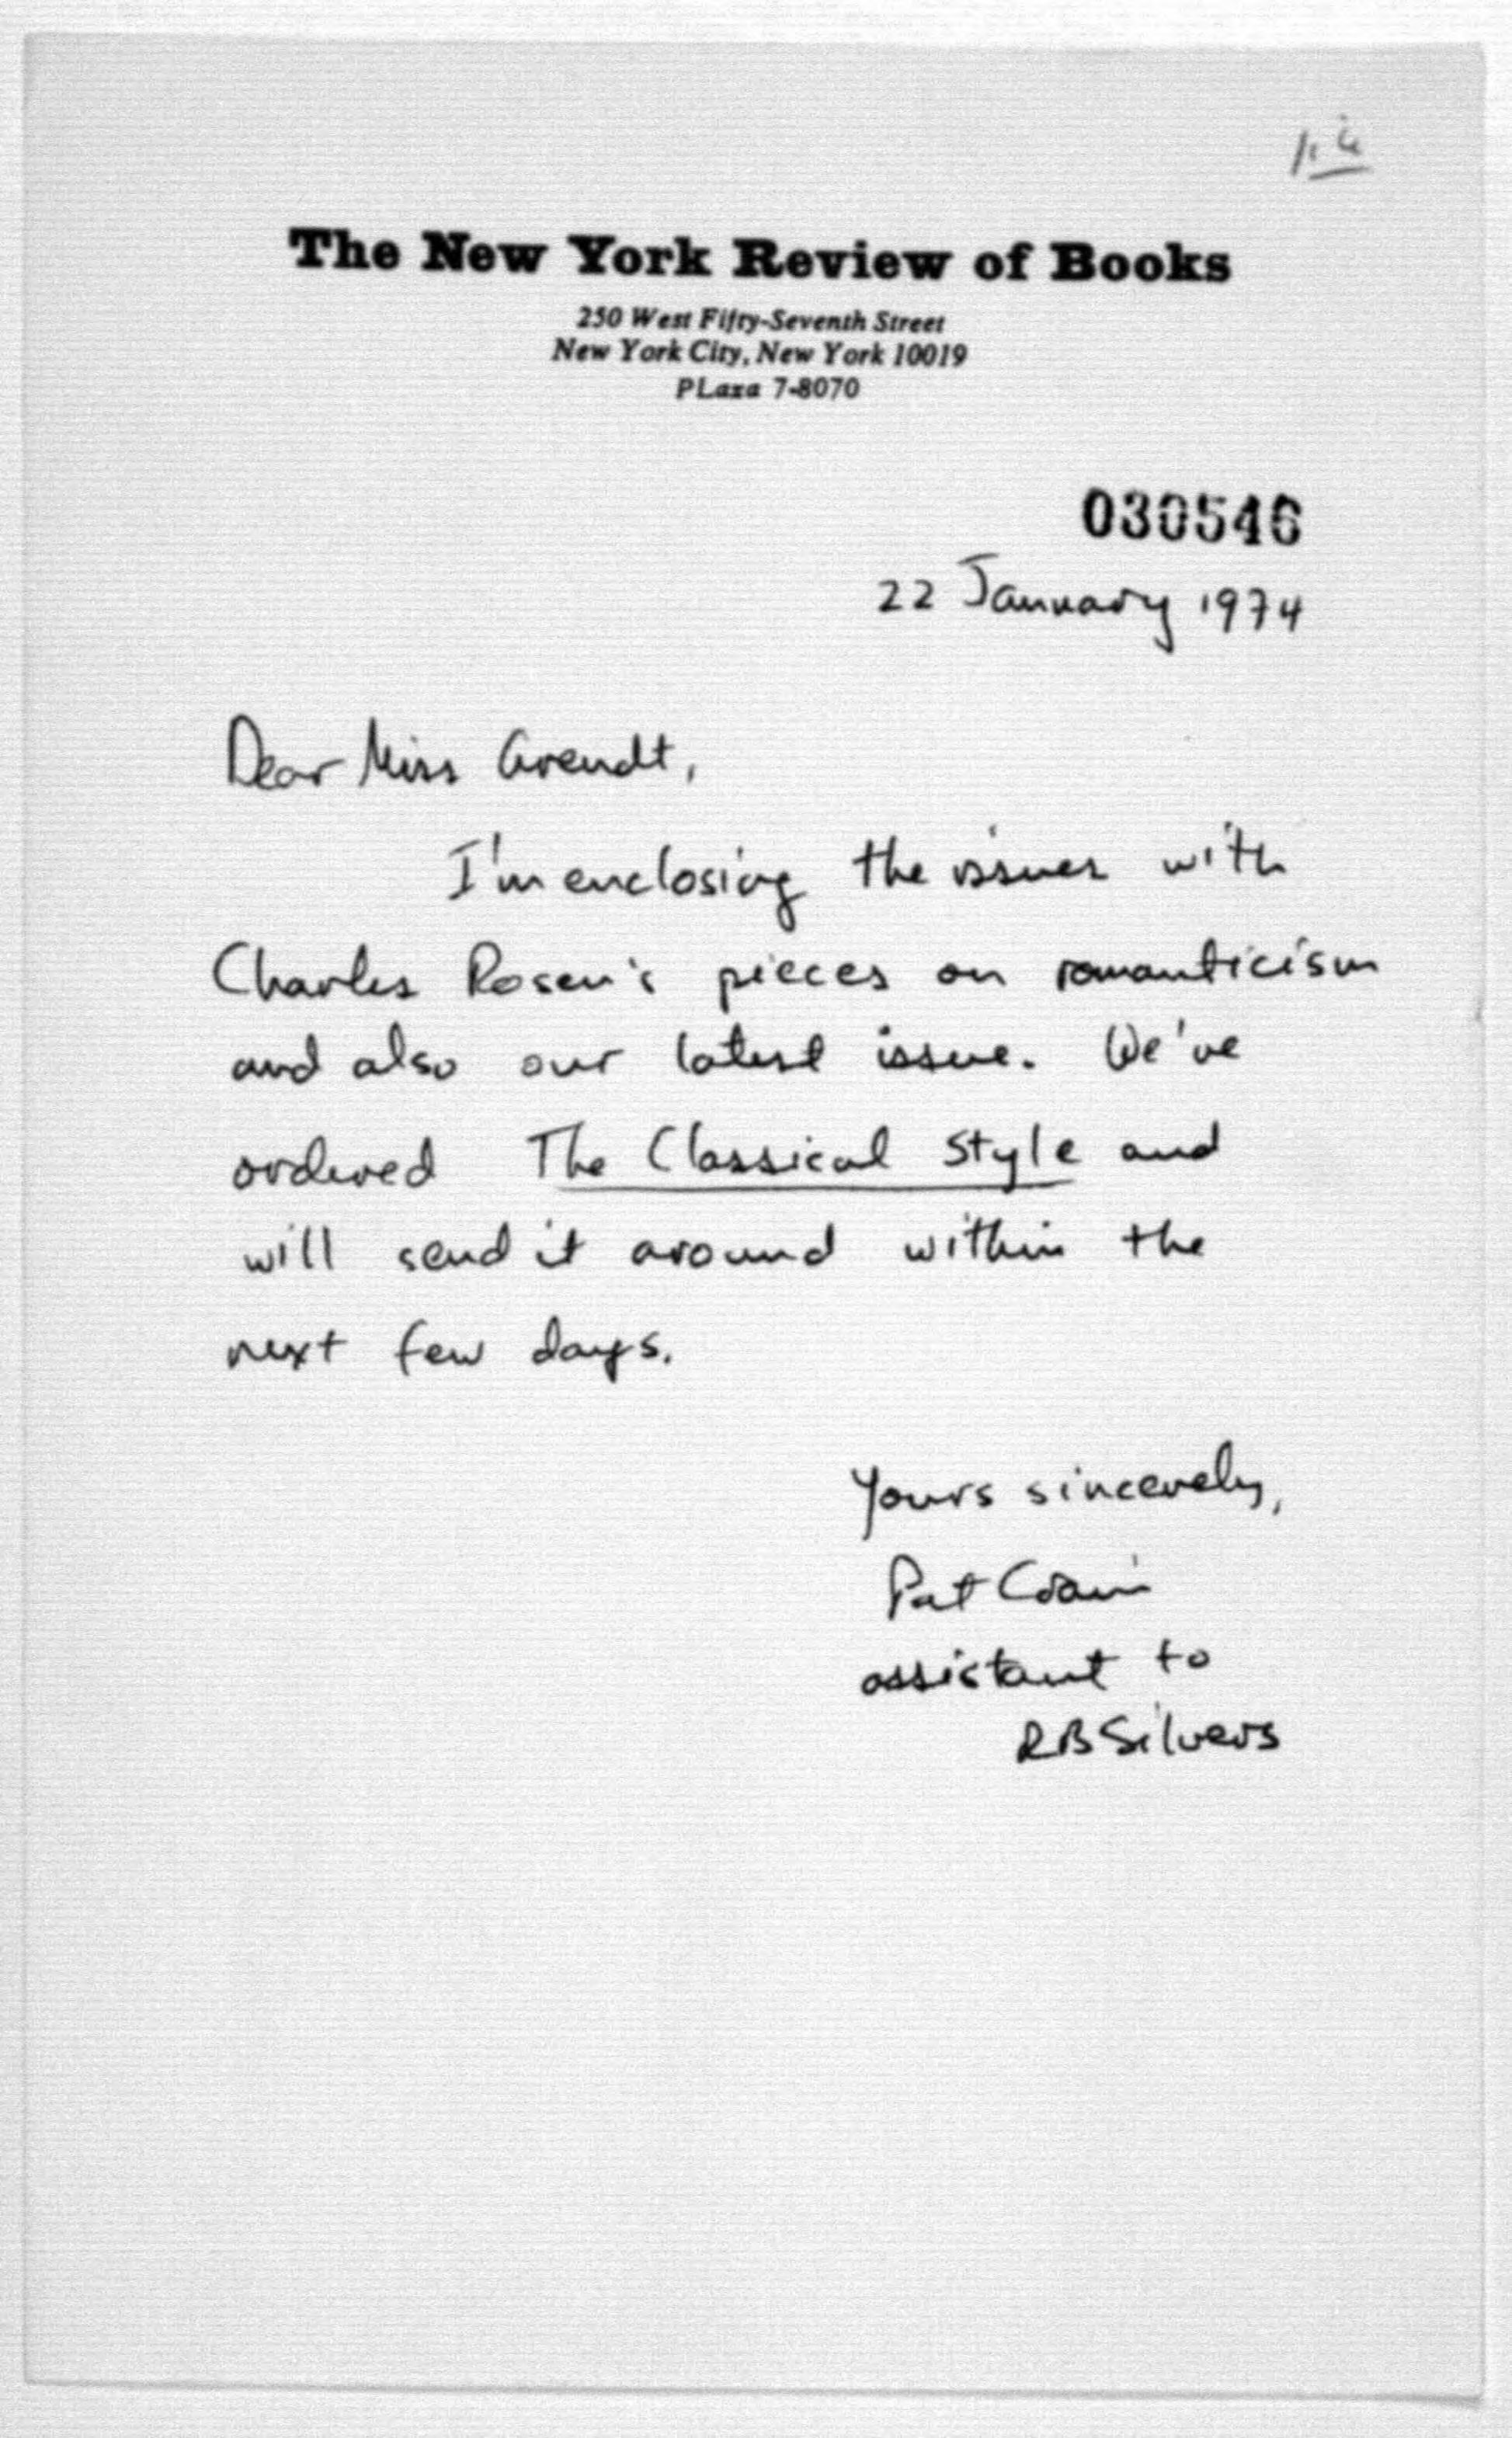 The New York Review of Books
250 West Fifty-Seventh Street
New York City, New York 10019
PLaza 7-8070
030546
22 January 1974
Dear Miss Arendt,
I'm enclosing the issues with
Charles Rosen's pieces on romanticism
and also our latest issue. We've
ordered The Classical Style and
will send it around within the
next few days.
Yours sincerely,
Pat
assistant to
RB Silvers